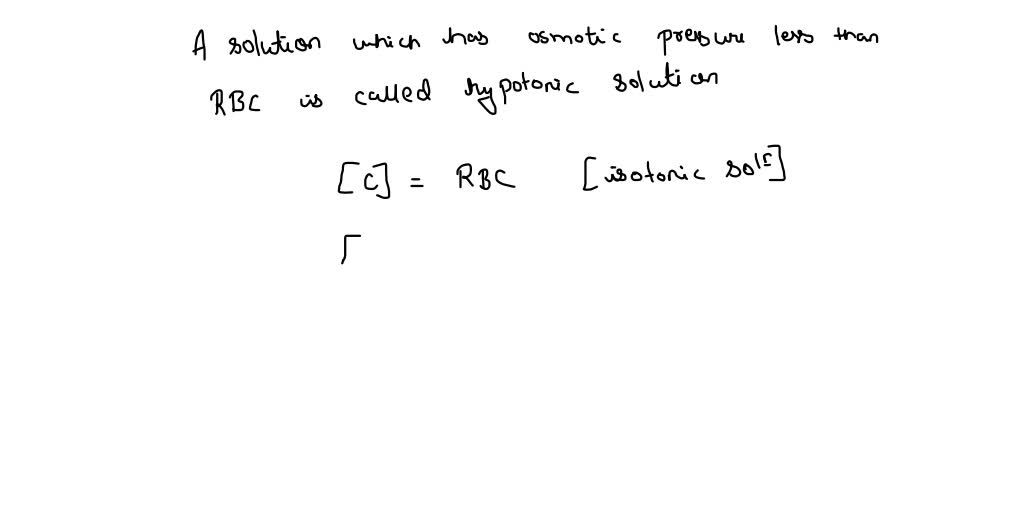 A solution which has osmotic pressure less than
RBC is called hypotonic solution
[C] = RBC [isotonic solⁿ]
[